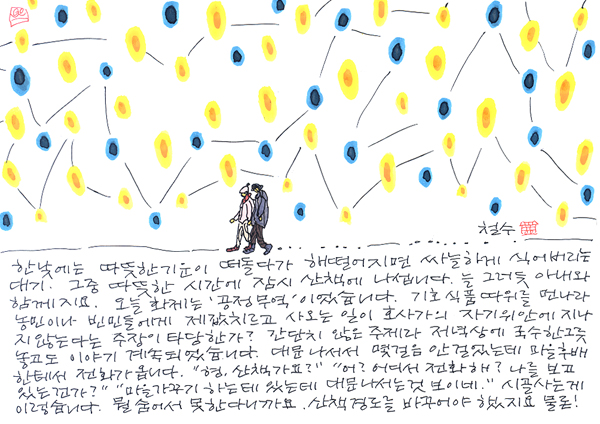 철수
한낮에는 따뜻한 기운이 떠돌다가 해 떨어지면 싸늘하게 식어버리는
대기. 그중 따뜻한 시간에 잠시 산책에 나섭니다. 늘 그러듯 아내와
함께지요. 오늘 화제는 '공정무역'이었습니다. 기호식품 따위를 먼나라
농민이나 빈민들에게 제값치르고 사오는 일이 호사가의 자기위안에 지나
지 않는다는 주장이 타당한가? 간단치 않은 주제라 저녁상에 국수 한그릇
놓고도 이야기 계속되었습니다. 대문 나서서 몇걸음 안 걸었는데 마을후배
한테서 전화가 옵니다. "형, 산책가요?" "어? 어여서 전화해? 나를 보고
있는건가?" "마을가꾸기 하는데 있는데 대문나서는것 보이네." 시골사는게
이렇습니다. 뭘 숨어서 못한다니까요. 산책경로를 바꾸어야 했지요 물론!